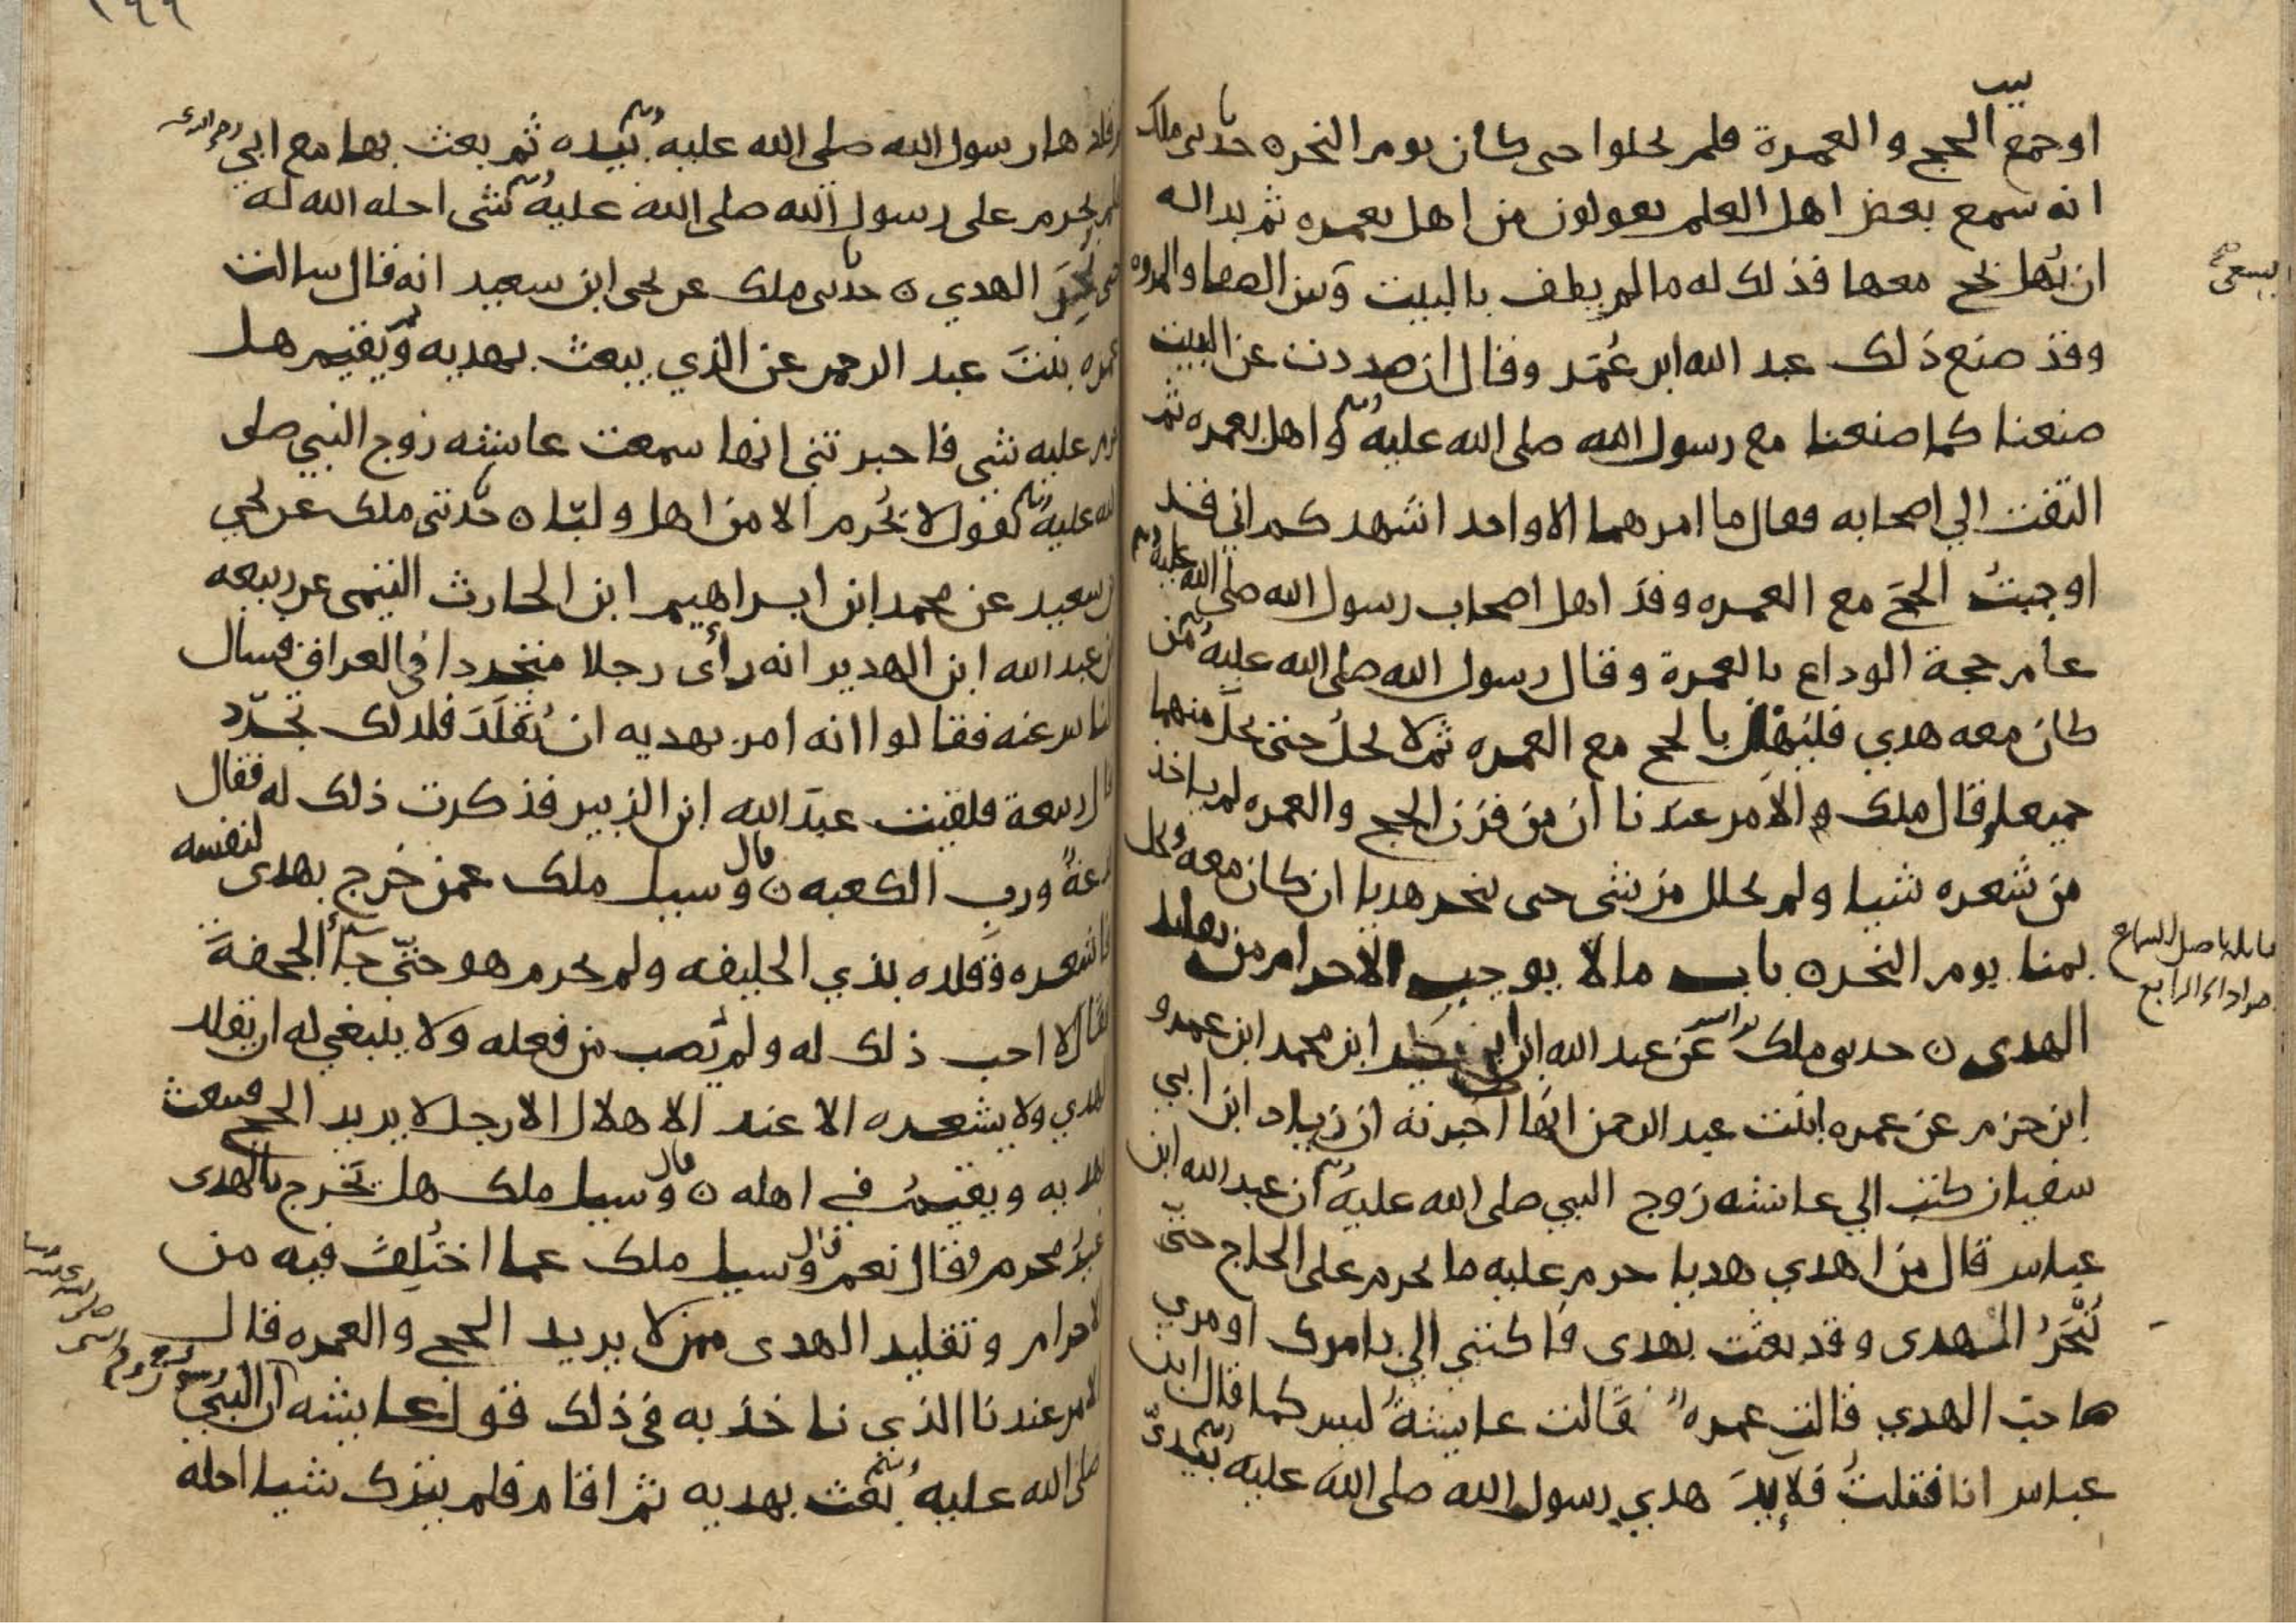 او جمع الحج والعمرة فلم يحلوا حتى كان يوم النحر ه حدثنى ملك
انه سمع بعض اهل العلم يقولون من اهل بعمره ثم بدا له
ان يُهل بحج معها فذلك له ما لم يطف بالبيت وبين الصفا والمروه
وقد صنع ذلك عبد الله ابن عُمَر وقال ان صددت عن البيت
صنعنا كما صنعنا مع رسول الله صلى الله عليه وسلم واهل بعمره ثم
التفت الي اصحابه فقال ما امرهما الا واحد اشهدكم اني قد
اوجبتُ الحجَ مع العمره وقد اهل اصحاب رسول الله صلى الله عليه وسلم
عام حجة الوداع بالعمرة وقال رسول الله صلى الله عليه وسلم من
كان معه هدي فليُهلل بالحج مع العمره ثم لا يحلُ حتى يحلَّ منهما
جميعا قال ملك والامر عندنا ان من قرن الحج والعمره لم ياخذ
من شعره شيا ولم يحلل من شى حتى ينحر هديا ان كان معه ويحل
بمنا يوم النحر ه باب ما لا يوجب الاحرام من تقليد
الهدى ه حدثنى ملك عن عبد الله ابن ابي بكر ابن محمد ابن عمرو
ابن حزم عن عمره ابنت عبد الرحمن انها اخبرته ان زياد ابن ابي
سفيان كتب الي عائشه زوج النبي صلى الله عليه وسلم ان عبد الله ابن
عباس قال من اهدي هديا حرم عليه ما يحرم على الحاج حتى
يُنْحَرُ الهدى وقد بعثت بهدى فاكتبي الي بامرك او مري
صاحب الهدي قالت عمره قالت عايشةُ ليس كما قال ابن
عباس انا فتلتُ قلايدَ هدي رسول الله صلى الله عليه وسلم بيديَّ
يسعى
قلدها رسول الله صلى الله عليه وسلم بيده ثم بعث بها مع ابي
فلم يحرم على رسول الله صلى الله عليه وسلم شى احله الله له
حتى نُحِرَ الهدي ه حدثنى ملك عن يحى ابن سعيد انه قال سالت
عمره بنتَ عبد الرحمن عن الذي يبعث بهديه ويُقيم هل
يحرم عليه شى فاخبرتني انها سمعت عائشه زوج النبي صلى
الله عليه وسلم تقول لا يحُرم الا من اهل ولبّا ه حدثنى ملك عن يحي
ابن سعيد عن محمد ابن ابراهيم ابن الحارث التيمى عن ربيعه
ابن عبد الله ابن الهدير انه رأى رجلا متجردا في العراق فسال
الناس عنه فقالوا انه امر بهديه ان يُقَلَّدَ فلذلك تجرّد
قال ربيعة فلقيت عبدَ الله ابن الزبير فذكرت ذلك له فقال
بدعةً ورب الكعبه ه قال وسيل ملك عمن خرج بهدى لنفسه
فاشعره وقلده بذي الحليفه ولم يحرم هو حتّى جأ الجحفةَ
فقال لا احب ذلك له ولم يُصب من فعله ولا ينبغي له ان يقلد
الهدي ولا يشعره الا عند الاهلال الا رجل لا يريد الحج فيبعث
به ويقيمُ في اهله ه قال وسيل ملك هل يَخرج بالهدى
غيرُ محرم فقال نعم قال وسيل ملك عما اختُلِفَ فيه من
الاحرام وتقليد الهدى ممن لا يريد الحج والعمره قال
الامر عندنا الذي ناخذ به في ذلك قول عايشه ان النبي
صلى الله عليه وسلم بَعَث بهديه ثم اقام فلم يترك شيا احله